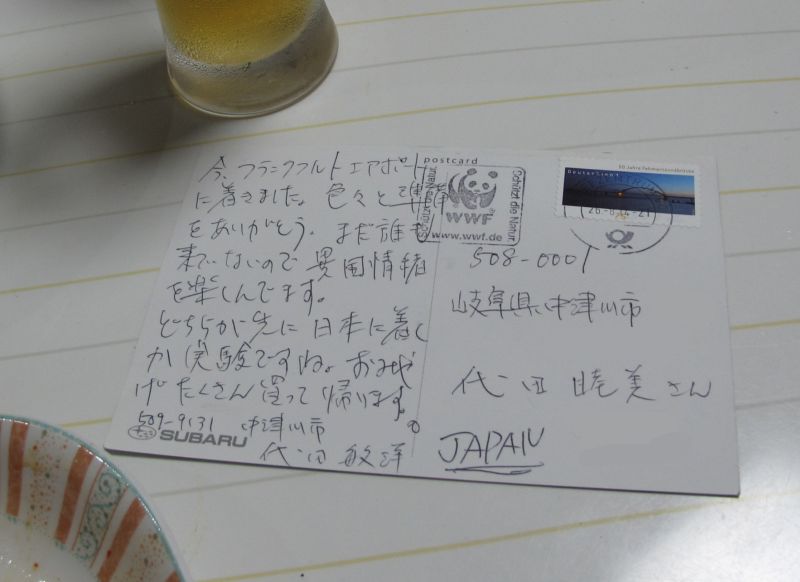 今、フランクフルトエアポート
に着きました。色々と準備
をありがとう。まだ誰も
来ていないので異国情緒
を楽しんでます。
どちらが先に日本に着く
か実験ですね。おみや
げたくさん買って帰ります。
509-9131 中津川市
SUBARU
代田 敏洋
postcard
WWF
www.wwf.de
Schützt die Natur
50 Jahre Fehmarnsundbrücke
Deutschland
508-0001
岐阜県中津川市
代田 睦美さん
JAPAN